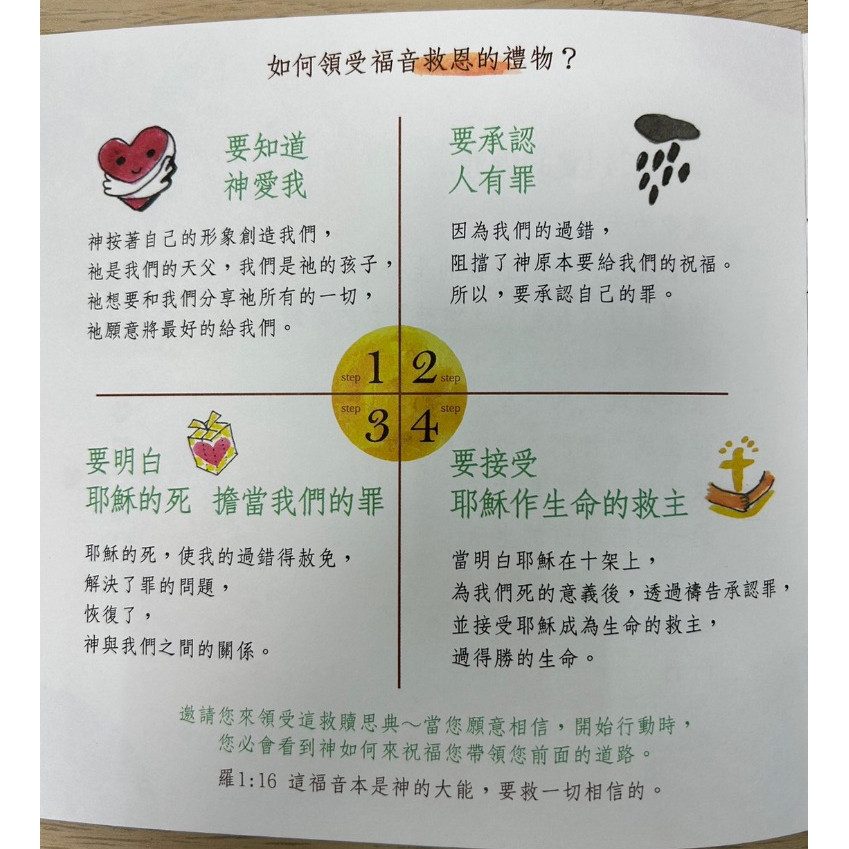 如何領受福音救恩的禮物？
要知道
神愛我
神按著自己的形象創造我們，
祂是我們的天父，我們是祂的孩子，
祂想要和我們分享祂所有的一切，
祂願意將最好的給我們。
step 1
要承認
人有罪
因為我們的過錯，
阻擋了神原本要給我們的祝福。
所以，要承認自己的罪。
2 step
要明白
耶穌的死 擔當我們的罪
耶穌的死，使我的過錯得赦免，
解決了罪的問題，
恢復了，
神與我們之間的關係。
step 3
要接受
耶穌作生命的救主
當明白耶穌在十架上，
為我們死的意義後，透過禱告承認罪，
並接受耶穌成為生命的救主，
過得勝的生命。
4 step
邀請您來領受這救贖思典～當您願意相信，開始行動時，
您必會看到神如何來祝福您帶領您前面的道路。
羅1:16 這福音本是神的大能，要救一切相信的。